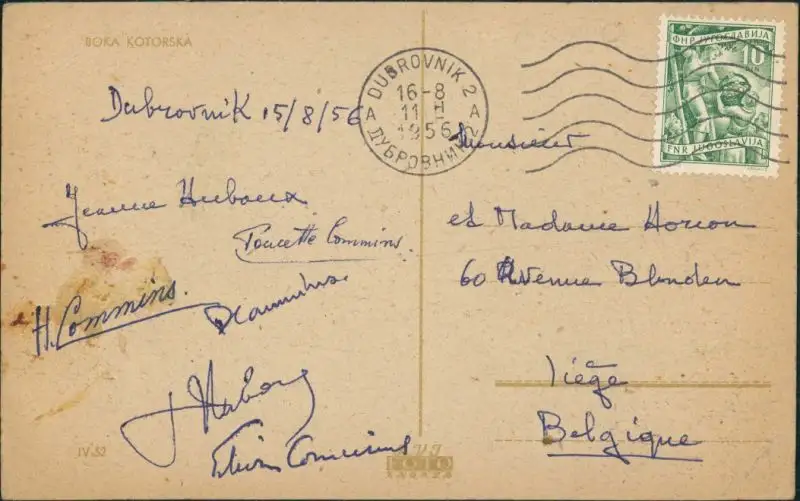 BOKA KOTORSKA
Dubrovnik 15/8/56
Jeanne Huboux
Poucette Commins.
H. Commins.
Commins
IV-52
FOTO
DUBROVNIK 2
16-8
11
1956
A A
ДУБРОВНИК 2
ФНР ЈУГОСЛАВИЈА
10
FNR JUGOSLAVIJA
Monsieur
et Madame Horion
60 Avenue Blonden
Liége
Belgique